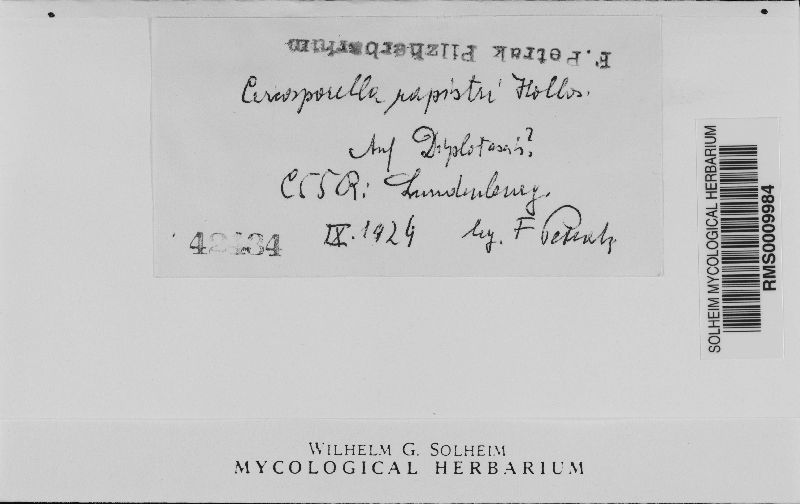 F. Petrak Pilzherbarium
Cercosporella rapistri Hollos.
Auf Diplotaxis?
ČSR: Lundenburg.
42434 IX. 1924 leg. F Petrak
SOLHEIM MYCOLOGICAL HERBARIUM
RMS0009984
WILHELM G. SOLHEIM
MYCOLOGICAL HERBARIUM